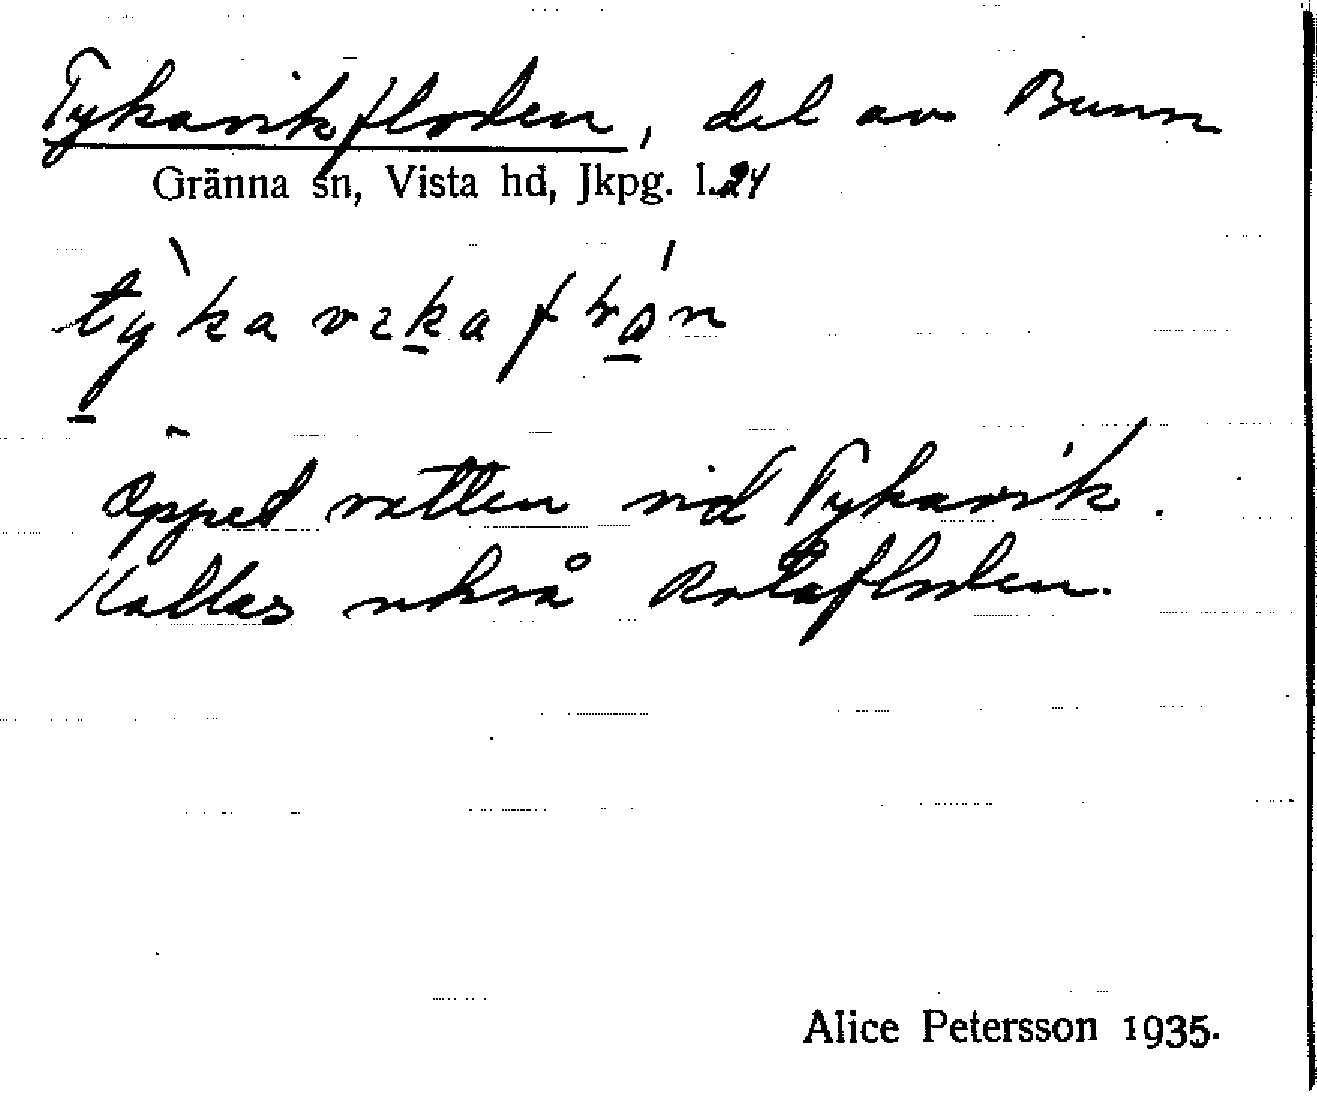 Tykavikfloden, del av Bunn
Gränna sn, Vista hd, Jkpg. l. 24
öppet vatten vid Tykavik.
Kallas också Rotafloden.
Alice Petersson 1935.